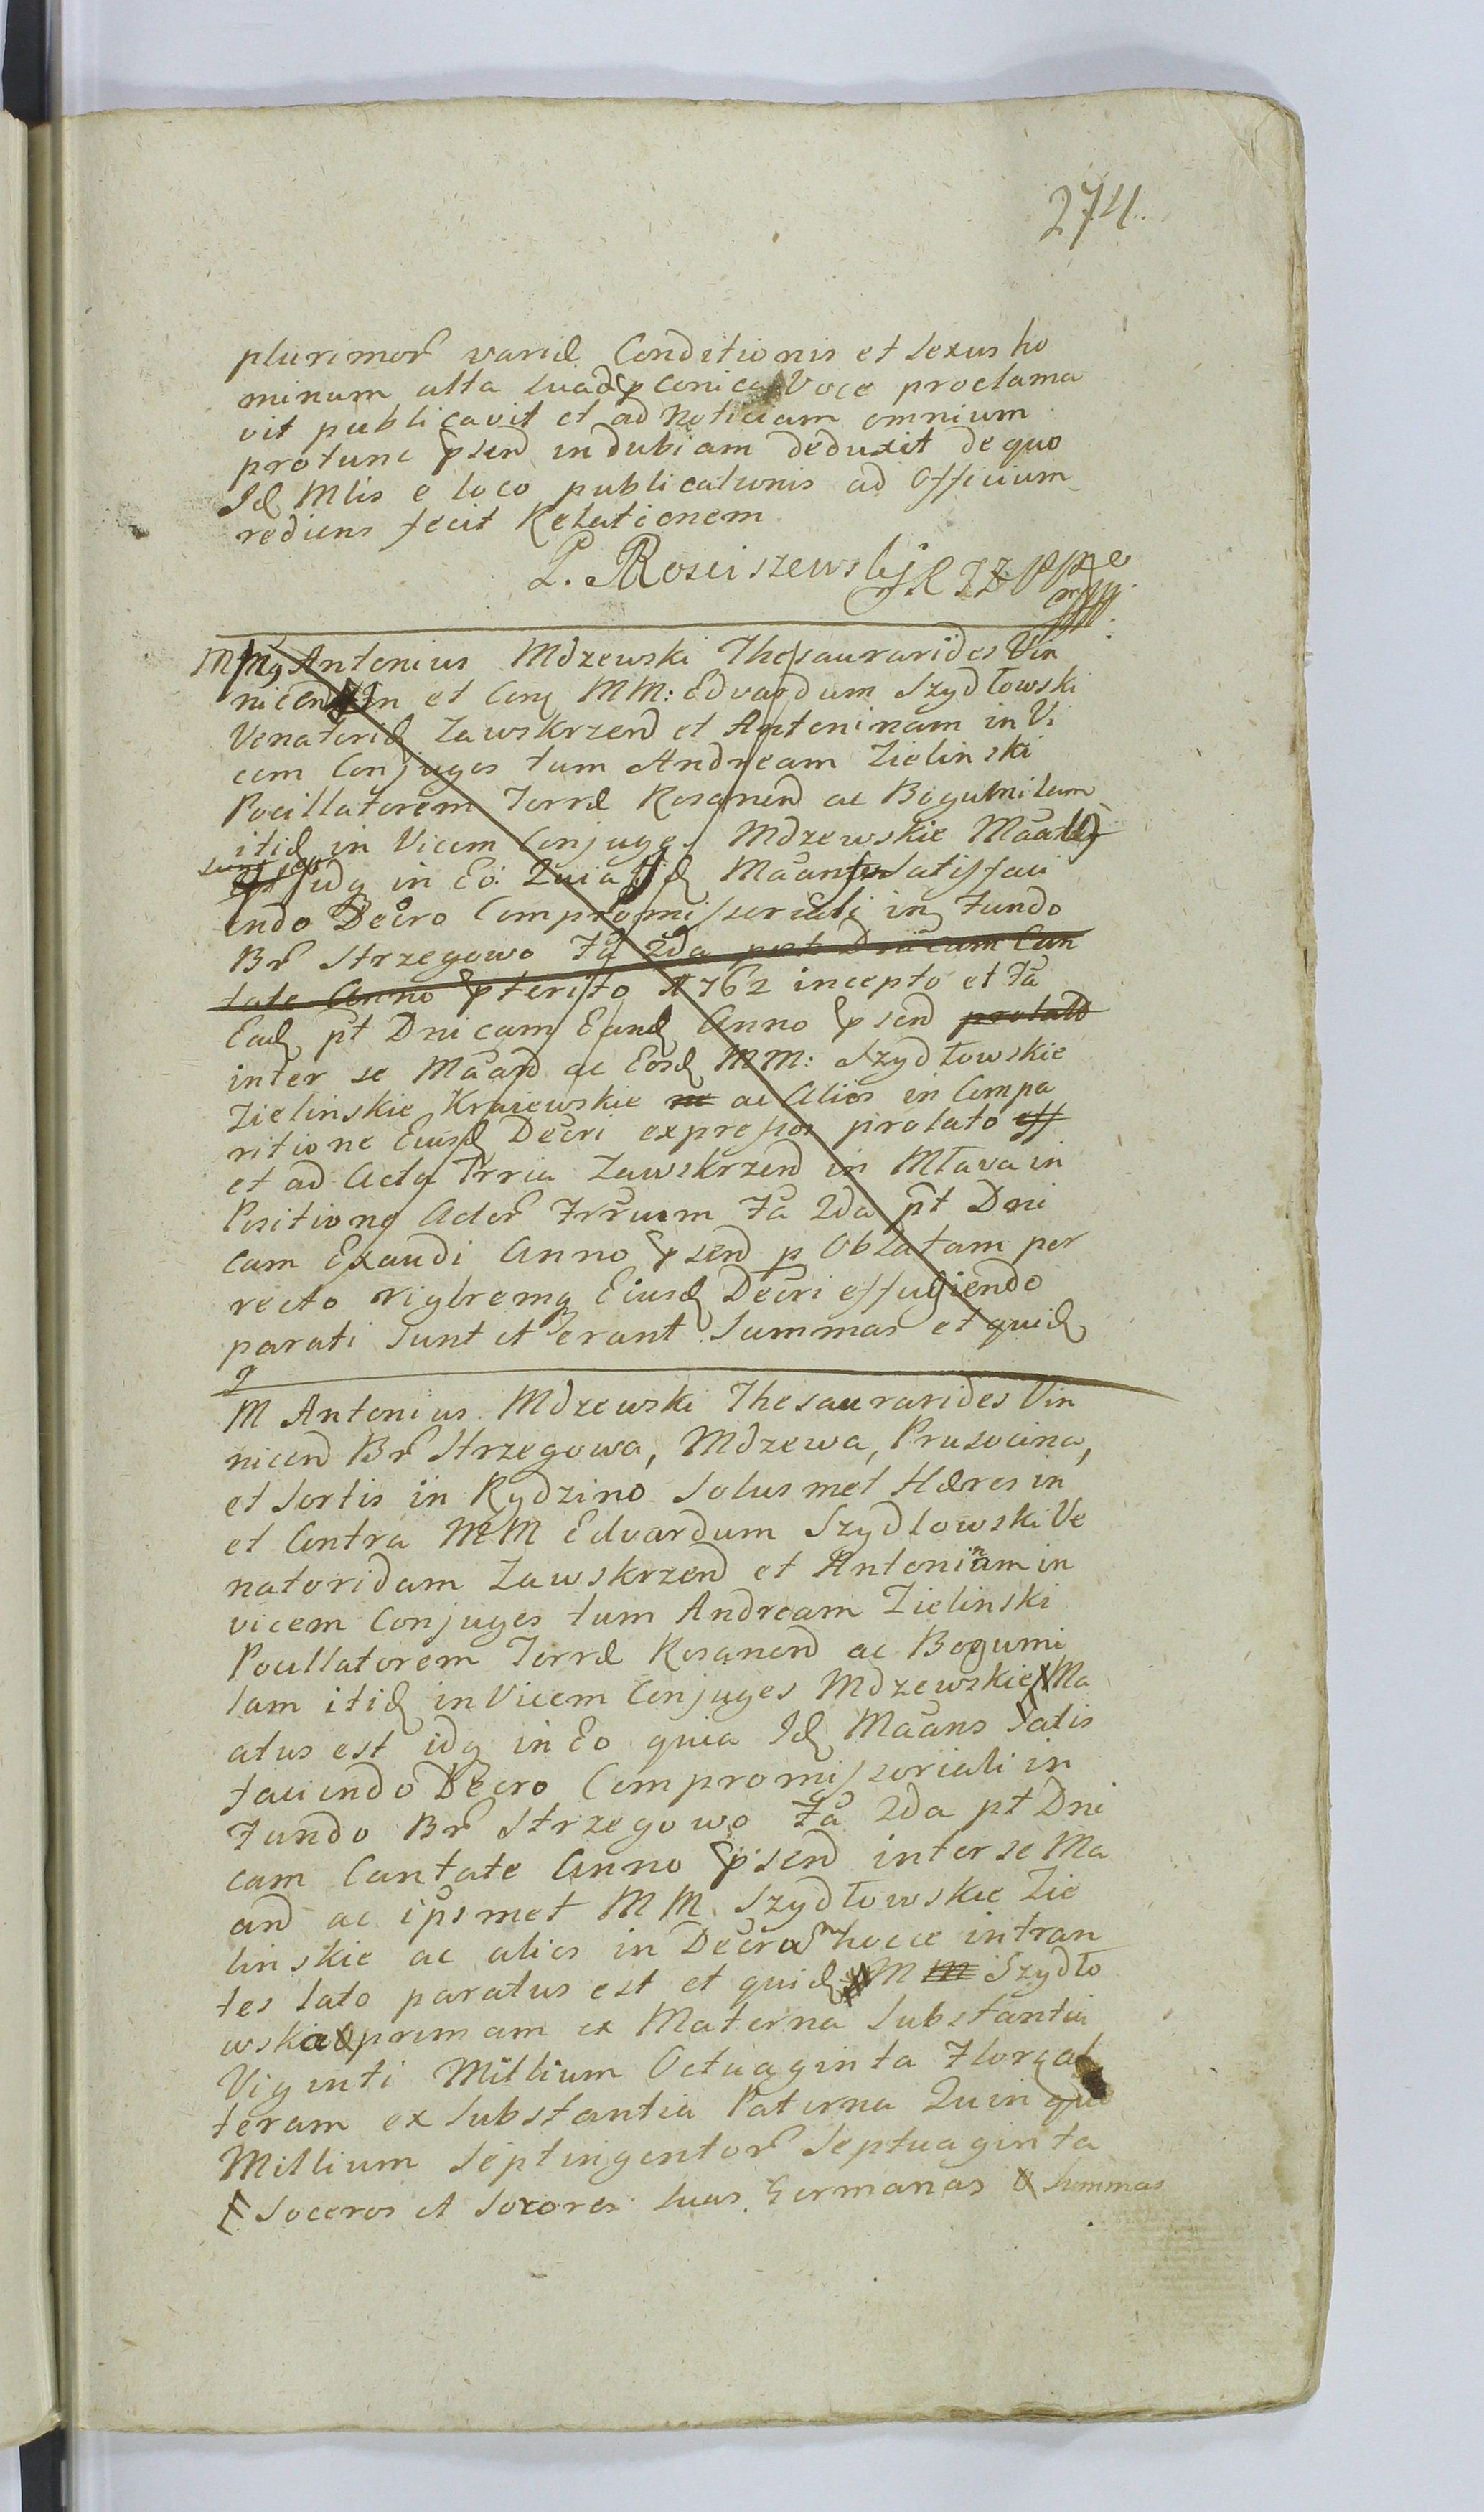 274.
plurimor varie Conditionis et Sexus ho
minum alta suaq conica Voce proclama
vit publicavit et ad Noticiam omnium
protunc psen indubiam deduxit de quo
Id Mlis e loco publicationis ad Officium
rediens fecit Relationem
L. Rosciszewski
Antonius Mdzewski Thesaurarides Vin
nicen In et Con MM: Edvardum Szydłowski
Venatorid Zawskrzen et Antoninam in Vi
cem Conjuges tum Andream Zielinski
Pocillatorem Terre Rosanen ac Bogumilam
itid in Vicem Conjuges Mdzewskie
idq in Eo. Quia Id Maans Satisfaci
endo Decro Compromissoriali in Fundo
Br Strzegowo Fa 2da post Dnicam Can
tate Anno pterito 1762 incepto et Fa
Ead pt Dnicam Eand Anno psen prolato
inter se Maan ac Eosd MM: Szydłowskie
Zielinskie Kraiewskie ac Alios in Compa
ritione Eiusd Decri expressos prolato
et ad Acta Trria Zawskrzen in Mława in
Positione Actor Trrium Fa 2da pt Dni
cam Exaudi Anno psen p Oblatam por
recto rigoremq Eiusd Decri effugiendo
parati sunt et erant Summas et quid
M Antonius Mdzewski Thesaurarides Vin
nicen Br Strzegowa, Mdzewa, Prusocina,
et Sortis in Rydzino Solusmet Hæres in
et Contra MM Edvardum Szydlowski Ve
natoridam Zawskrzen et Antoninam in
vicem Conjuges tum Andream Zielinski
Pocillatorem Terre Rosanen ac Bogumi
lam itid in Vicem Conjuges Mdzewskie Ma
atus est idq in Eo quia Id Maans Satis
faciendo Decro Compromissoriali in
Fundo Br Strzegowo Fa 2da pt Dni
cam Cantate Anno psen inter se Ma
an ac ipsmet MM. Szydłowskie Zie
linskie ac alios in Decro hocce intran
tes lato paratus est et quid M Szydło
wskie primam ex Materna Substantia
Viginti Millium Octuaginta Flor al
teram ex Substantia Paterna Quinque
Millium Septingentor Septuaginta
Soceros et Sorores suas Germanas Summas